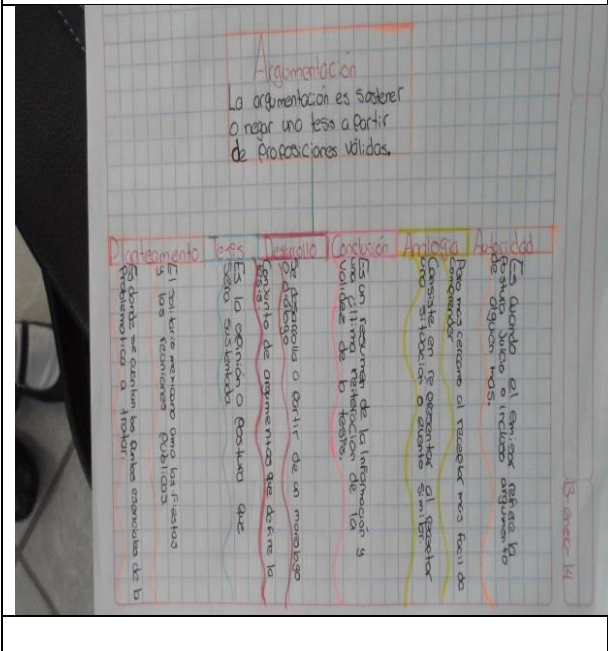 Argumentación
La argumentación es sostener
o negar una tesis a partir
de proposiciones válidas.
Planteamiento
Tesis
Desarrollo
Conclusión
Analogía
Autoridad
Es donde se cuentan los puntos esenciales de la
problematica a tratar.
El solitario mexicano ama las fiestas
y las reuniones publicas
Es la opinión o postura que
será sustentada
Conjunto de argumentos que define la
tesis.
Se desarrolla a partir de un monologo
o dialogo
Es un resumen de la información y
una última reiteración de la
validez de la tesis.
Consiste en representar al receptor
una situación o evento similar.
Para mas cercano al receptor mas facil de
comprender
Es cuando el emisor refiere la
postura juicio o incluso argumento
de alguien mas.
13-enero-14